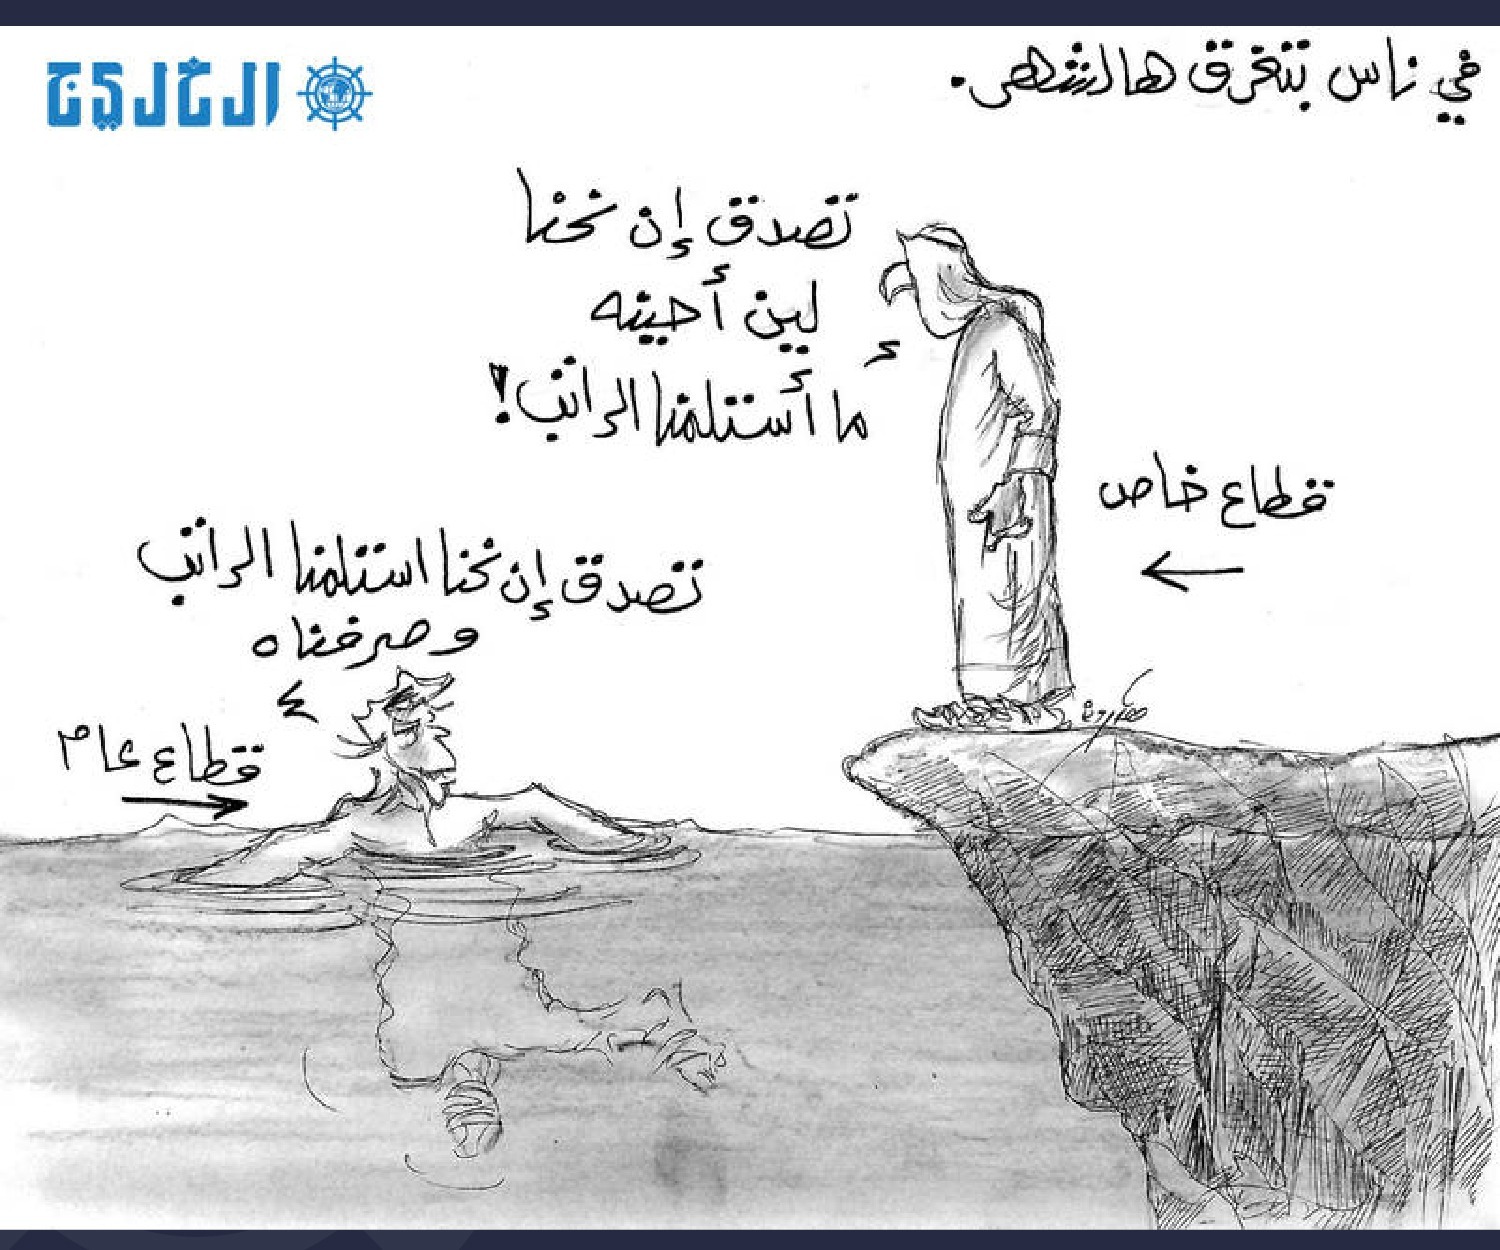 في ناس بتغرق هالشهر.
الخليج
تصدق إن نحنا
لين أحينه
ما أستلمنا الراتب!
قطاع خاص
تصدق إن نحنا استلمنا الراتب
وصرفناه
قطاع عام